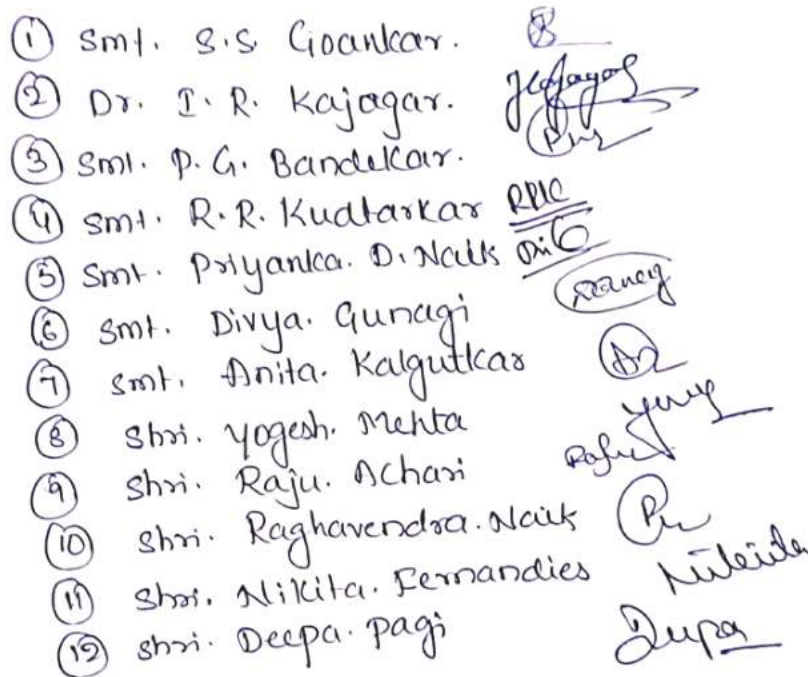 ① Smt. S.S. Goankar.
② Dr. I. R. Kajagar.
③ Smt. P. G. Bandekar.
④ Smt. R. R. Kudtarkar RRK
⑤ Smt. Priyanka. D. Naik
⑥ Smt. Divya. Gunagi
⑦ Smt. Anita. Kalgutkar
⑧ Shri. Yogesh. Mehta
⑨ Shri. Raju. Achari Raju
⑩ Shri. Raghavendra. Naik
⑪ Shri. Nikita. Fernandies
⑫ Shri. Deepa. Pagi Deepa